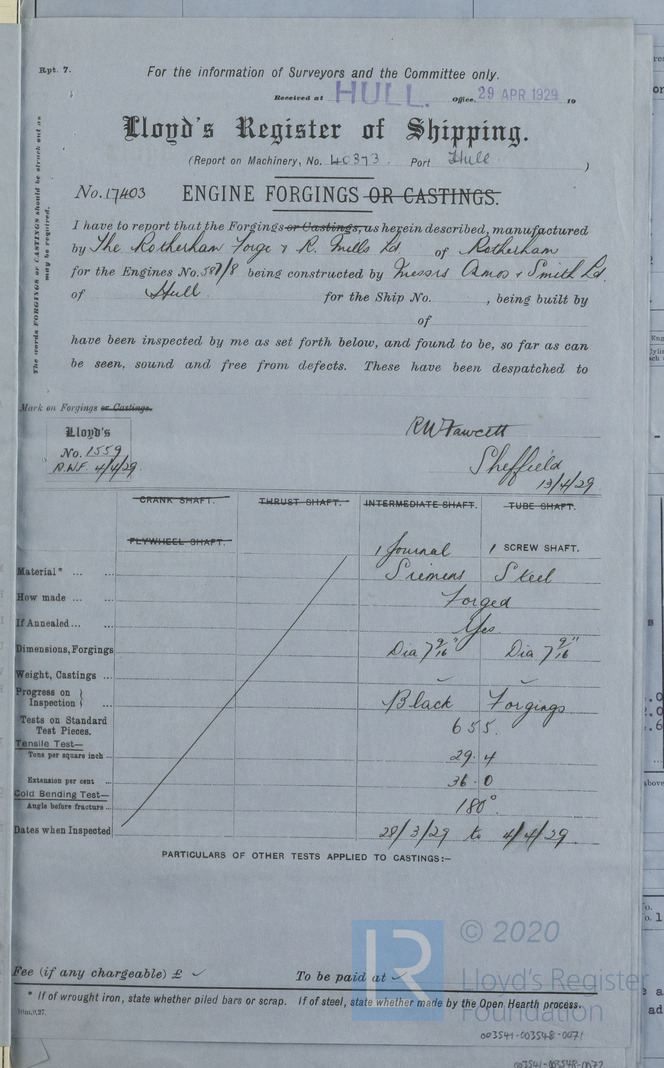 Rpt. 7.
For the information of Surveyors and the Committee only.
Received at HULL. Office, 29 APR 1929 19
Lloyd's Register of Shipping.
(Report on Machinery, No. 40373. Port Hull )
No. 17403 ENGINE FORGINGS OR CASTINGS.
The words FORGINGS or CASTINGS should be struck out as
may be required.
I have to report that the Forgings or Castings, as herein described, manufactured
by The Rotherham Forge & R. Mills Ld of Rotherham
for the Engines No. 587/8 being constructed by Messrs Amos & Smith Ld.
of Hull for the Ship No. , being built by
of
have been inspected by me as set forth below, and found to be, so far as can
be seen, sound and free from defects. These have been despatched to
Mark on Forgings or Castings.
Lloyd's
No. 1559
R.W.F. 4/4/29.
RW Fawcett
Sheffield
13/4/29
CRANK SHAFT. THRUST SHAFT. INTERMEDIATE SHAFT. TUBE SHAFT.
FLYWHEEL SHAFT. 1 Journal 1 SCREW SHAFT.
Material* ... ... Siemens Steel
How made ... ... Forged
If Annealed ... ... Yes
Dimensions, Forgings Dia 7 9/16" Dia 7 9/16"
Weight, Castings ...
Progress on Inspection } ... Black Forgings
Tests on Standard Test Pieces. 655.
Tensile Test—
Tons per square inch ... 29.4
Extension per cent ... 36.0
Cold Bending Test—
Angle before fracture ... 180°.
Dates when Inspected 28/3/29 to 4/4/29.
PARTICULARS OF OTHER TESTS APPLIED TO CASTINGS:—
Fee (if any chargeable) £ To be paid at
* If of wrought iron, state whether piled bars or scrap. If of steel, state whether made by the Open Hearth process.
© 2020
LR
Lloyd's Register
Foundation
003541-003548-0071
003541-003548-0072